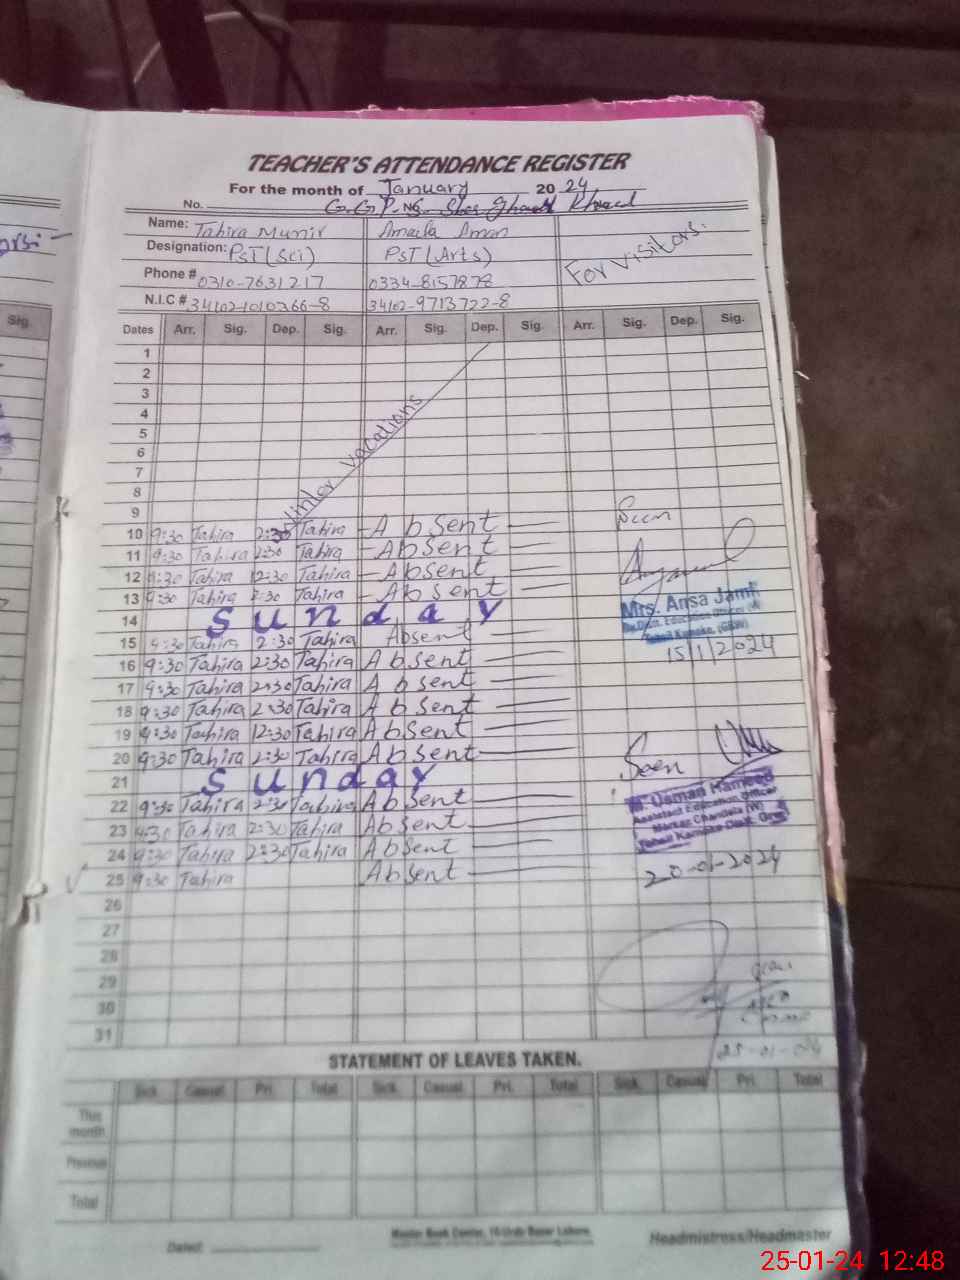 TEACHER'S ATTENDANCE REGISTER
For the month of January 2024
No. G.G.P.S.
Name: Tahira Munir
Designation: PST (Sci) PST (Arts)
For visitors.
Phone # 0310-7631217 0334-8157878
N.I.C # 34102-1010366-8 34102-9713722-8
Sig.
Dates Arr. Sig. Dep. Sig. Arr. Sig. Dep. Sig. Arr. Sig. Dep. Sig.
1
2
3
4
5
6
7
8
Winter vacations
9
10 9:30 Tahira 2:30 Tahira Absent
Seen
11 9:30 Tahira 2:30 Tahira Absent
12 9:30 Tahira 12:30 Tahira Absent
13 9:30 Tahira 2:30 Tahira Absent
14 Sunday
Mrs. Ansa Jamil
15 9:30 Tahira 2:30 Tahira Absent
15/1/2024
16 9:30 Tahira 2:30 Tahira Absent
17 9:30 Tahira 2:30 Tahira Absent
18 9:30 Tahira 2:30 Tahira Absent
19 9:30 Tahira 12:30 Tahira Absent
20 9:30 Tahira 2:30 Tahira Absent
Seen
21 Sunday
22 9:30 Tahira 2:30 Tahira Absent
M. Usman Hameed
Assistant Education Officer
23 9:30 Tahira 2:30 Tahira Absent
24 9:30 Tahira 2:30 Tahira Absent
25 9:30 Tahira Absent
20-01-2024
26
27
28
29
30
31
STATEMENT OF LEAVES TAKEN.
Sick Casual Pri. Total Sick Casual Pri. Total Sick Casual Pri. Total
This month
Previous
Total
Master Book Centre, Urdu Bazar Lahore.
Dated:
Headmistress/Headmaster
25-01-24 12:48